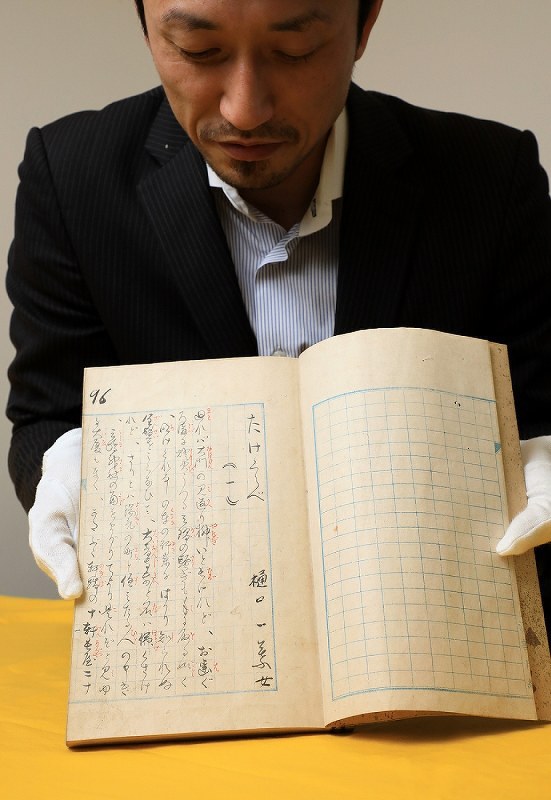 96
たけくらべ
(一)
樋口一葉女
廻れハ大門の見返り柳いと長けれど、お歯ぐ
ろ溝に燈火うつる三階の騒ぎも手に取る如く
、明けくれなしの車の行来にはかり知られぬ
全盛をうらなひて、大音寺前と名は佛くさけ
れど、さりとハ陽気の町と住みたる人の申き
、三嶋神社の角をまがりてより是れぞと見ゆ
る大厦もなく、かたぶく軒端の十軒長屋二十